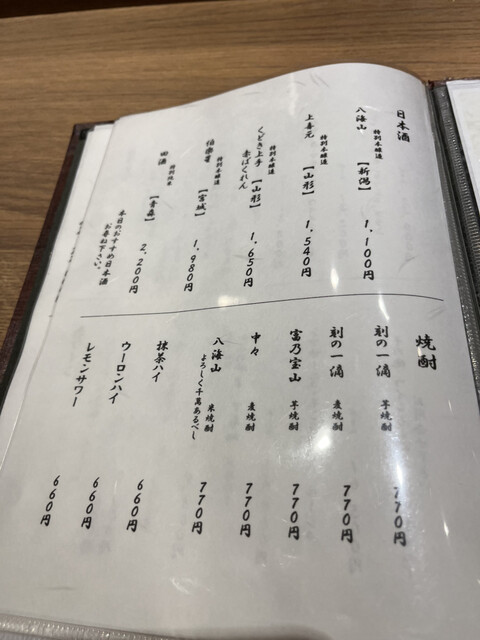 日本酒
八海山 特別本醸造 【新潟】 1,100円
上喜元 特別本醸造 【山形】 1,540円
くどき上手 特別本醸造
赤ばくれん 【山形】 1,650円
伯楽星 特別本醸造 【宮城】 1,980円
田酒 特別純米 【青森】 2,200円
本日のおすすめ日本酒
お尋ね下さい。
焼酎
刻の一滴 芋焼酎 770円
刻の一滴 麦焼酎 770円
富乃宝山 芋焼酎 770円
中々 麦焼酎 770円
八海山 よろしく千萬あるべし 米焼酎 770円
抹茶ハイ 660円
ウーロンハイ 660円
レモンサワー 660円